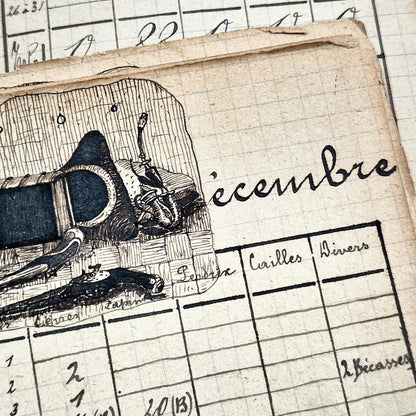 26 à 31
écembre
Lièvres Lapins Perdrix Cailles Divers
1
2 2
3 1
20 (13)
2 Bécasses